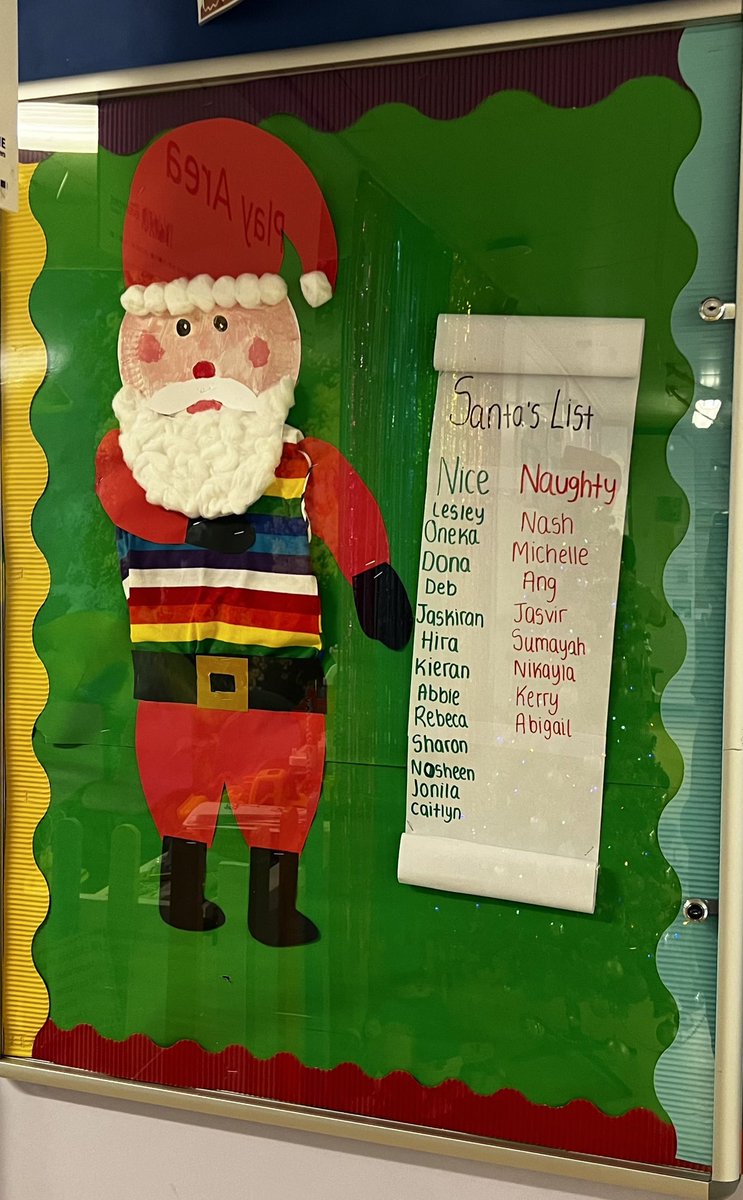 Play Area
Santa's List
Nice Naughty
Lesley Nash
Oneka Michelle
Dona Ang
Deb Jasvir
Jaskiran Sumayah
Hira Nikayla
Kieran Kerry
Abbie Abigail
Rebeca
Sharon
Nosheen
Jonila
Caitlyn